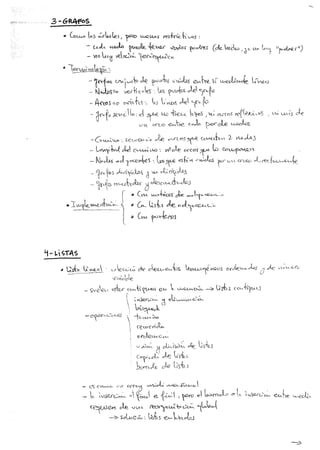 3-GRAFOS
• Como los árboles, pero menos restrictivos:
- cada nodo puede tener varios padres (de hecho, ya no hay "padres")
- no hay relación jerárquica
• Terminología:
- grafo: conjunto de puntos unidos entre sí mediante líneas
- Nodos o vertices: los puntos del grafo
- Arcos o aristas: las líneas del grafo
- grafo sencillo: el que no tiene , ni arcos reflexivos, ni más de
un arco entre cada par de nodos
- Camino: secuencia de arcos que conectan 2 nodos
- Longitud del camino: nº de arcos que lo componen
- Nodos adyacentes: los que están unidos por un arco directamente
- grafos dirigidos y no dirigidos
- grafos conectados y desconectados
• Implementación
• Con matrices de
• Con listas de adyacencia
• Con punteros
4-LISTAS
• Lista lineal: colección de elementos homogéneos ordenados y de
variable
- Suelen estar contiguos en la memoria → listas contiguas
- operaciones
inserción y eliminación
búsqueda
tamaño
recorrido
ordenación
unión y división de listas
copiado de listas
borrado de listas
- es como un array unidimensional
- la inserción al final es fácil, pero el borrado o la inserción entre medio
requieren de una global
→ solución: listas enlazadas
→